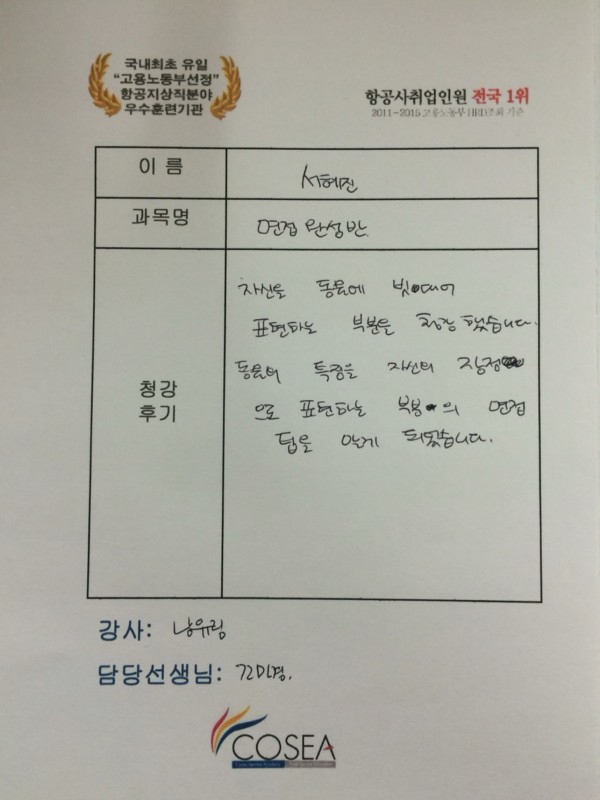 국내최초 유일
“고용노동부선정”
항공지상직분야
우수훈련기관
항공사취업인원 전국 1위
2011~2015 고용노동부 HRD조회 기준
이 름
서혜진
과목명
면접 완성반
청강
후기
자신을 동물에 빗대어
표현하는 부분을 청강 했습니다.
동물의 특징을 자신의 장점
으로 표현하는 부분의 면접
팁을 알게 되었습니다.
강사:
담당선생님:
COSEA